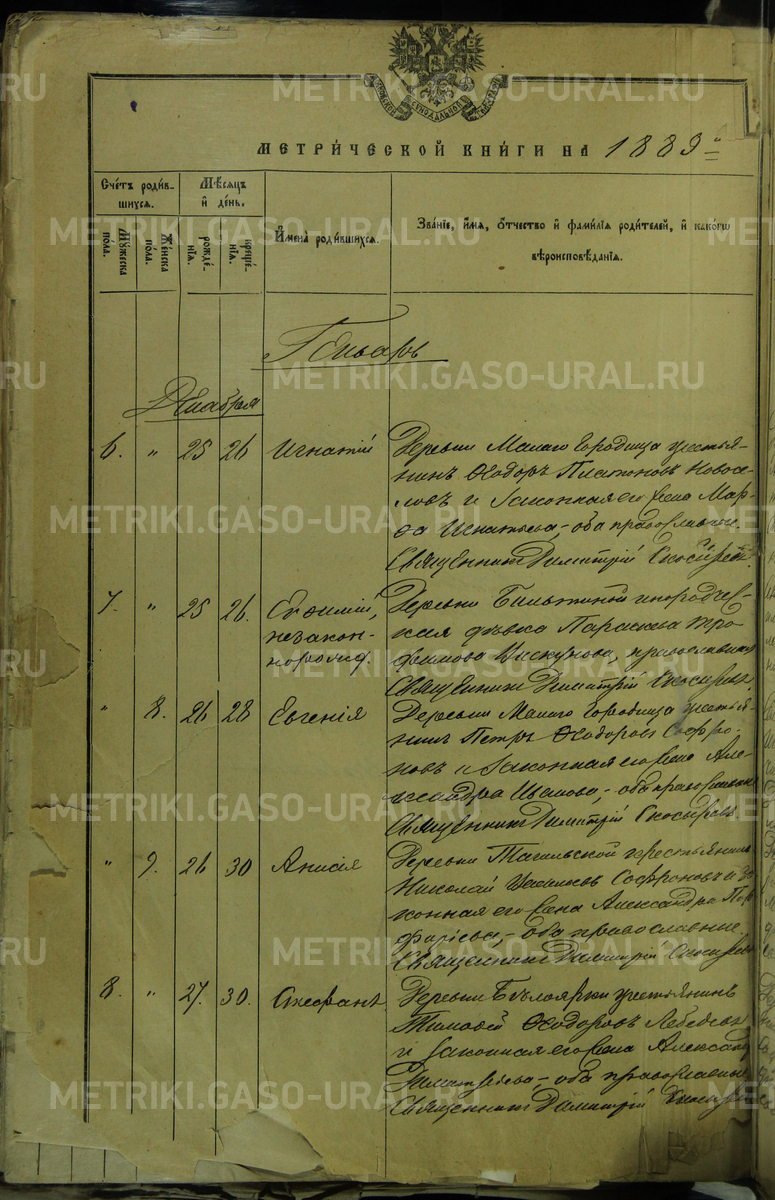 МЕТРИ́ЧЕСКОЙ КНИ́ГИ НА 1889 г.
Сче́тъ роди́в-
шихся.
Му́жеска
пола.
Же́нска
пола.
Мѣ́сяцъ
и де́нь.
рожде́-
нїя.
креще́-
нїя.
И҆мена̀ роди́вшихся.
Зва́нїе, и҆́мя, ѻ҆́тчество и҆ фами́лїя роди́телей, и҆ како́гѡ
вѣроисповѣ́данїя.
Генварь
Декабря
6. " 25 26 Игнатій
Деревни Малаго Городища крестья-
нинъ Ѳеодоръ Платоновъ Новосе-
ловъ и законная его жена Мар-
ѳа Игнатьева, оба православные.
Священникъ Димитрій Скосыревъ.
7. " 25 26. Евѳимій,
незакон-
норожд.
Деревни инородчес-
кая дѣвка Параскева Тро-
фимова Пискунова, православная
Священникъ Димитрій Скосыревъ.
" 8. 26 28 Евгенія
Деревни Малаго Городища крестья-
нинъ Петръ Ѳеодоровъ Софро-
новъ и законная его жена Але-
ксандра Иванова, оба православные
Священникъ Димитрій Скосыревъ.
" 9. 26 30 Анисія
Деревни Тагильской крестьянинъ
Николай Софроновъ и за-
конная его жена Александра Пор-
фирьева, оба православные.
Священникъ Димитрій Скосыревъ
8. " 27. 30.
Деревни Бѣлоярки крестьянинъ
Тимоѳей Ѳеодоровъ Лебедевъ
и законная его жена Александра
Димитріева, оба православные
Священникъ Димитрій Скосыревъ
METRIKI.GASO-URAL.RU